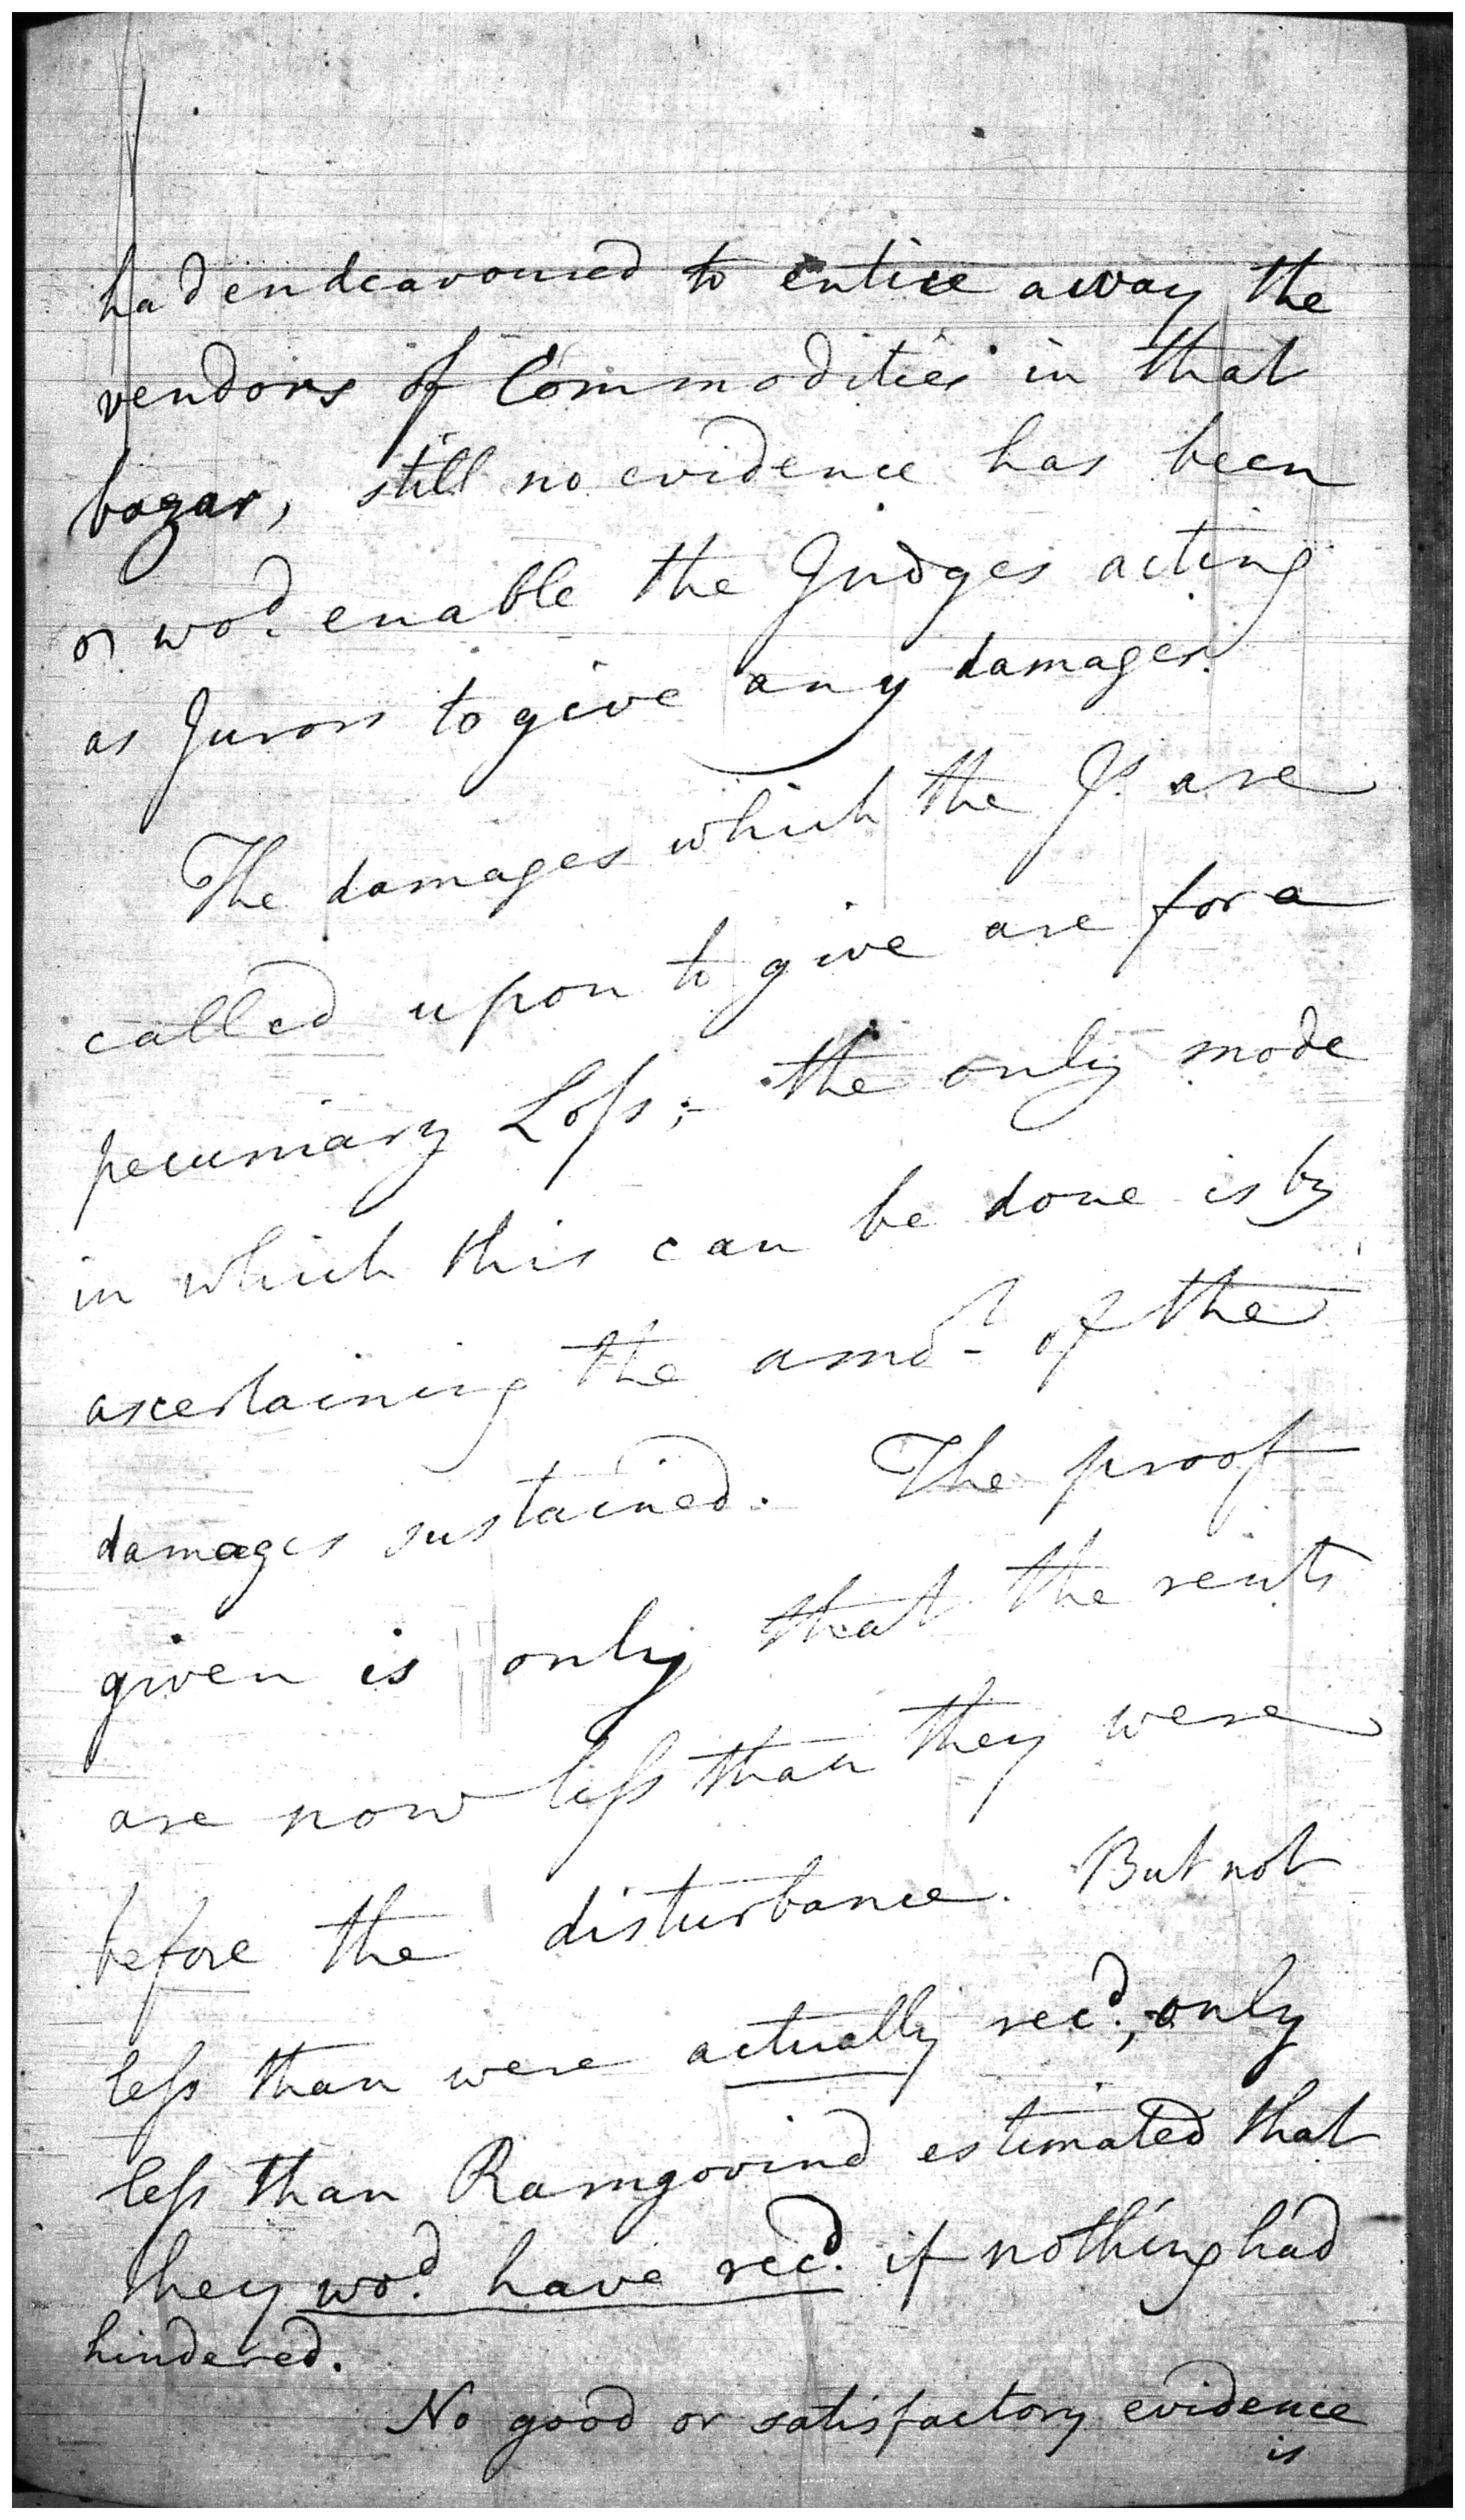 had endeavoured to entice away the
vendors of Commodities in that
bazar, still no evidence has been
or wod. enable the Judges acting
as Jurors to give any damages.
The damages which the Js. are
called upon to give are for a
pecuniary Loss; the only mode
in which this can be done is by
ascertaining the amot. of the
damages sustained. The proof
given is only that the rents
are now less than they were
before the disturbance. But not
less than were actually recd., only
less than Ramgovind estimated that
they wod. have recd. if nothing had
hindered.
No good or satisfactory evidence
is